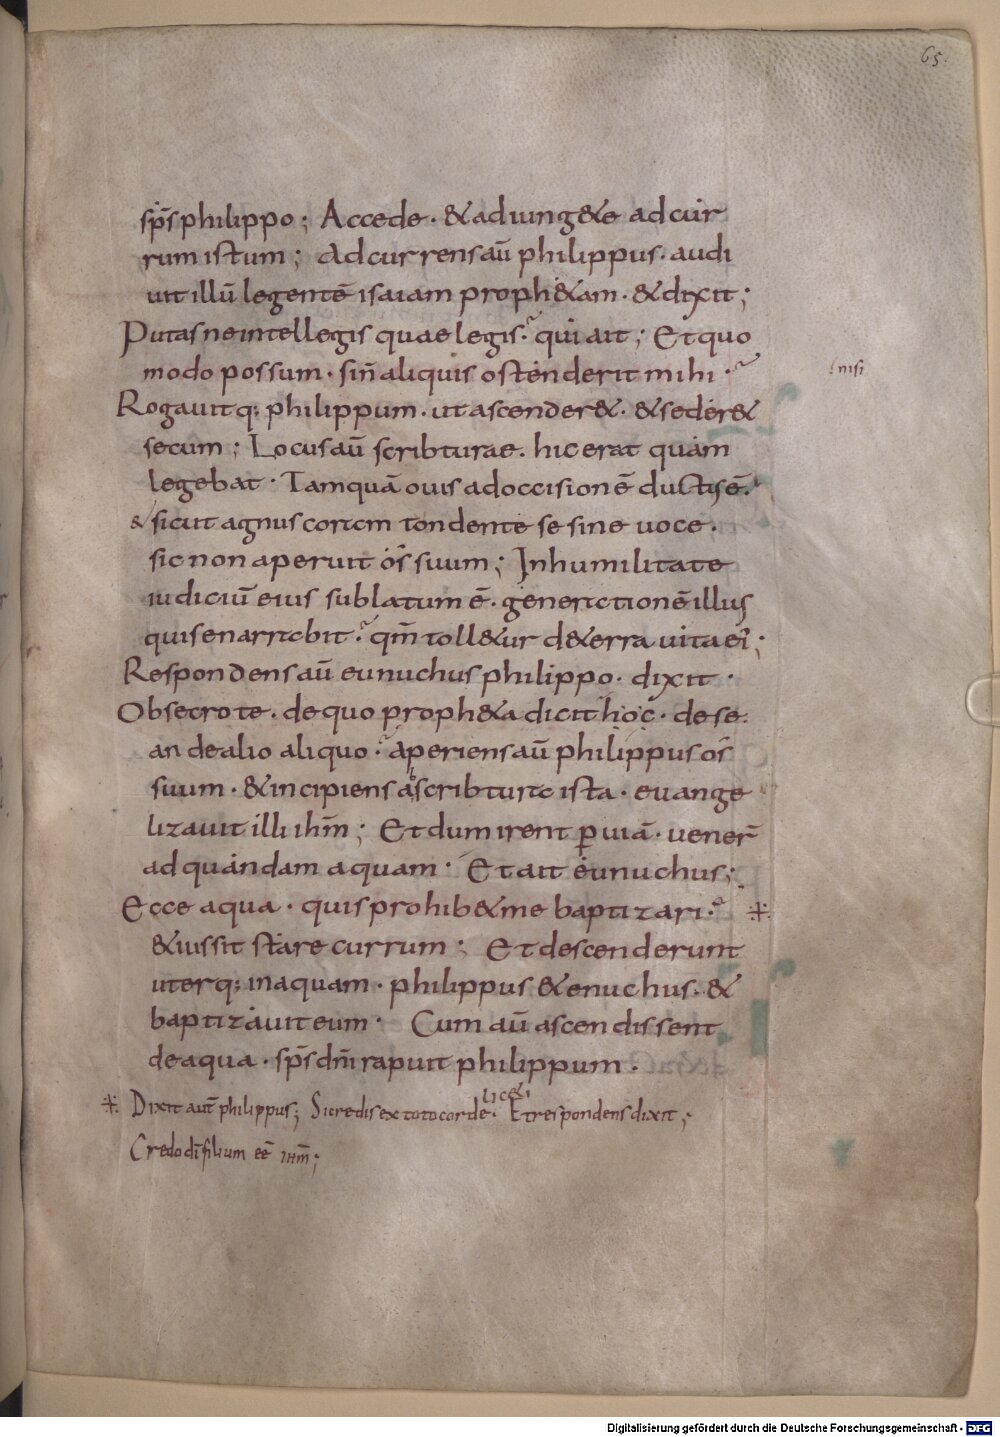 65.
sp̄s philippo; Accede · & adiung&e ad cur
rum istum; Adcurrens aū philippus · audi
uit illū legentē isaiam proph&am · & dixit;
Putasne intellegis quae legis · qui ait; Et quo
modo possum · sin̄ aliquis ostenderit mihi ·
l nisi
Rogauitq; philippum · ut ascender& · & seder&
secum; Locus aū scribturae · hic erat quam
legebat · Tamquā ouis ad occisionē ductus ē ·
& sicut agnus coram tondente se sine uoce ·
sic non aperuit os suum; In humilitate
iudiciū eius sublatum ē · generationē illius
quis enarrabit · qm̄ toll&ur d& erra uita ei;
Respondens aū eunuchus philippo · dixit ·
Obsecro te · de quo proph&a dicit hoc · de se ·
an de alio aliquo · aperiens aū philippus os
suum · & incipiens a scribtura ista · euange
lizauit illi ihm̄; Et dum irent p uiā · uener̄
ad quandam aquam · Et ait eunuchus;
Ecce aqua · quis prohib& me baptizari ·
& iussit stare currum; Et descenderunt
uterq; in aquam · philippus & enuchus · &
baptizauit eum · Cum aū ascendissent
de aqua · sp̄s dn̄i rapuit philippum ·
Dixit aut̄ philippus; Si credis ex toto corde · lic& Et respondens dixit;
Credo dī filium eē ihm̄;
Digitalisierung gefördert durch die Deutsche Forschungsgemeinschaft - DFG